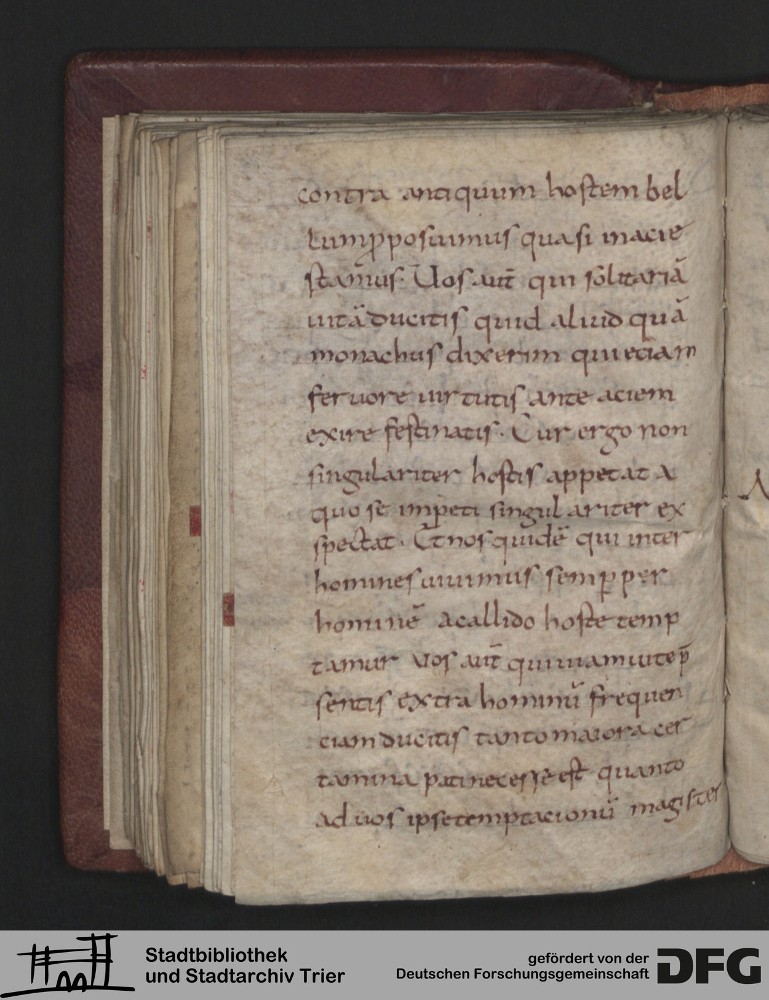 contra antiquum hostem bel
lum p̄posuimus quasi inacie
stamus. Uos aut̄ qui solitariā
uitā ducitis quid aliud quā
monachus dixerim qui eciam
feruore uirtutis ante aciem
exire festinatis. Cur ergo non
singulariter hostis appetat a
quo se impeti singulariter ex
spectat. Et nos quidē qui inter
homines uiuimus semp̱ per
hominē acallido hoste temp
tamur uos aut̄ qui uiam uite p̄
sentis extra hominū frequen
ciam ducitis tanto maiora cer
tamina pati necesse est quanto
ad uos ipse temptacionū magister
Stadtbibliothek
und Stadtarchiv Trier
gefördert von der
Deutschen Forschungsgemeinschaft
DFG